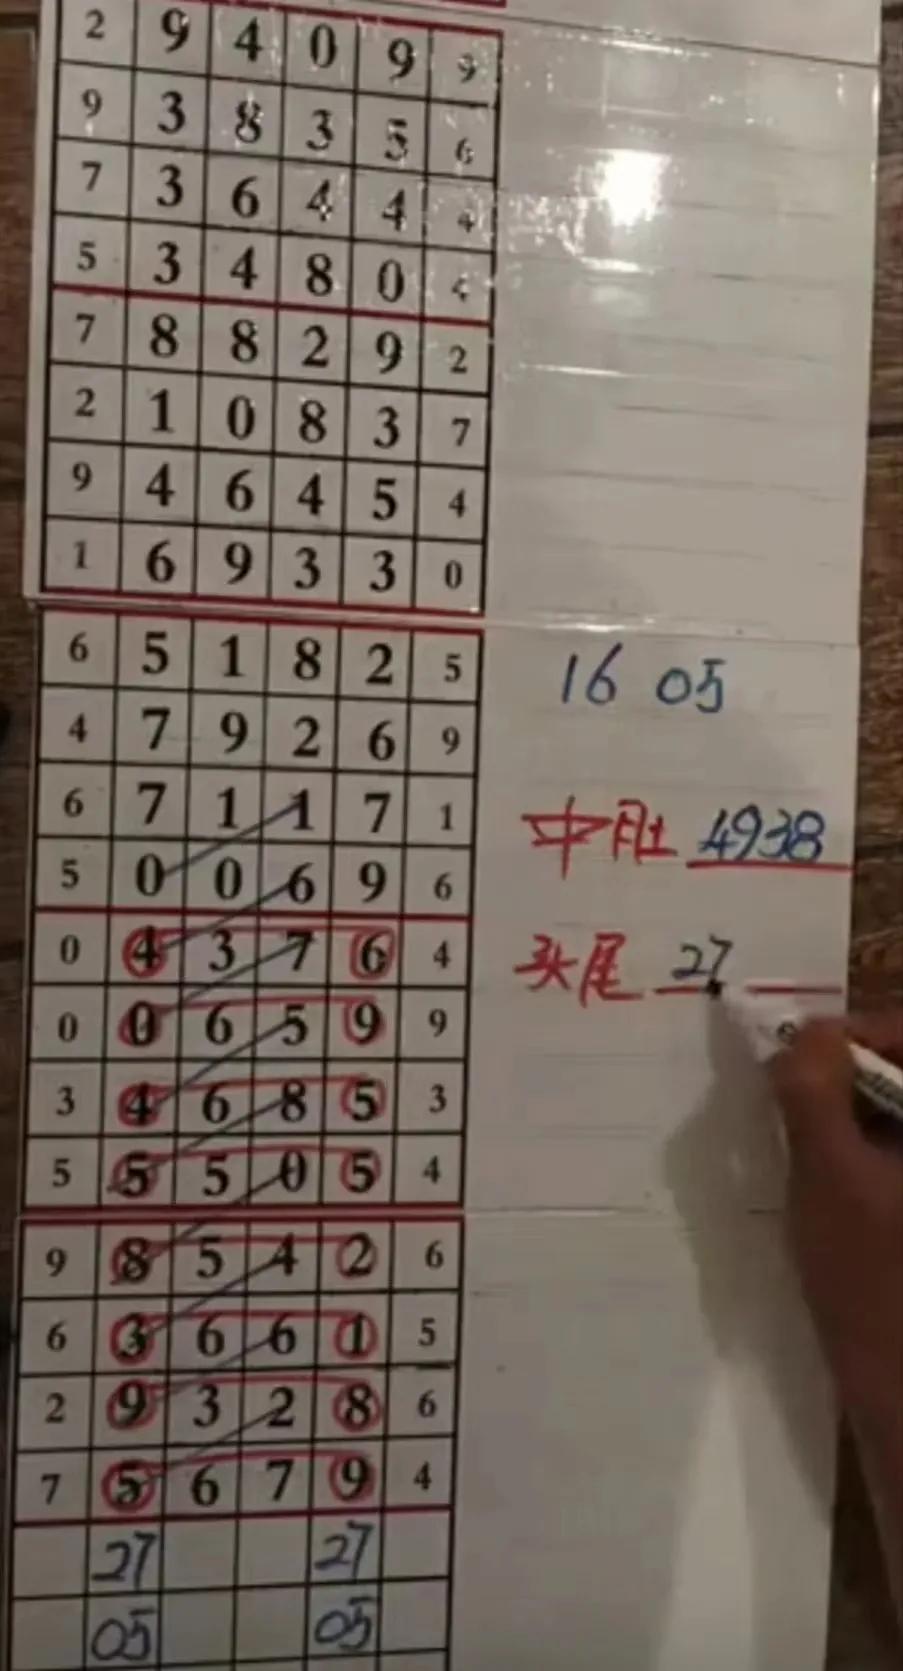 2 9 4 0 9 9
9 3 8 3 5 6
7 3 6 4 4 4
5 3 4 8 0 4
7 8 8 2 9 2
2 1 0 8 3 7
9 4 6 4 5 4
1 6 9 3 3 0
6 5 1 8 2 5
16 05
4 7 9 2 6 9
6 7 1 1 7 1
中肚 4938
5 0 0 6 9 6
0 4 3 7 6 4
头尾 27
0 0 6 5 9 9
3 4 6 8 5 3
5 5 5 0 5 4
9 8 5 4 2 6
6 3 6 6 1 5
2 9 3 2 8 6
7 5 6 7 9 4
27 27
05 05